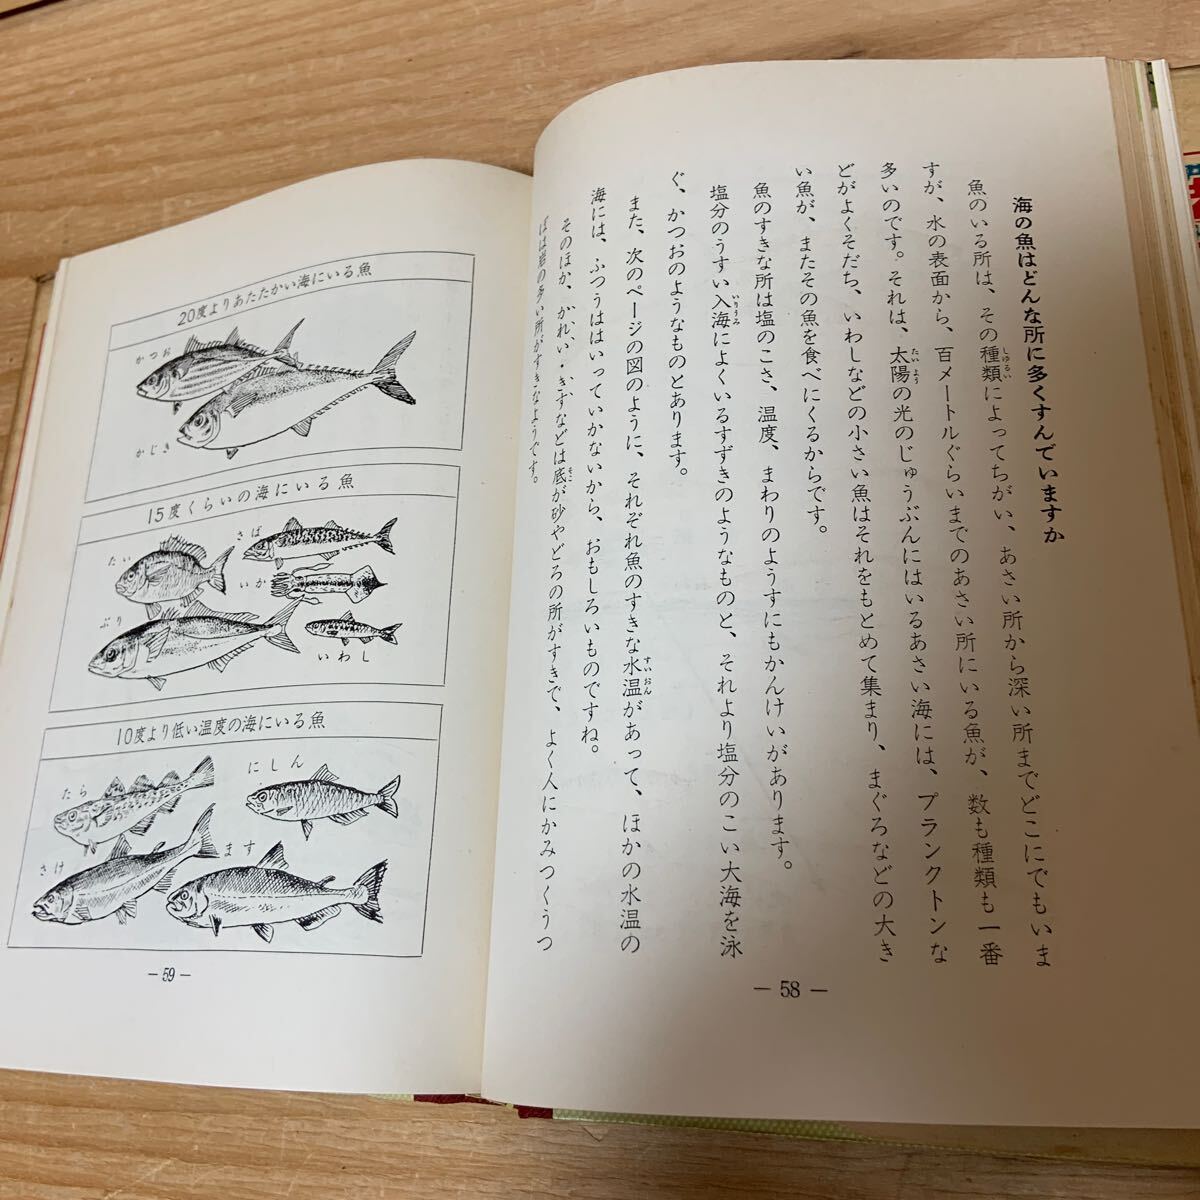 海の魚はどんな所に多くすんでいますか
魚のいる所は、その種類によってちがい、あさい所から深い所までどこにでもいま
すが、水の表面から、百メートルぐらいまでのあさい所にいる魚が、数も種類も一番
多いのです。それは、太陽の光のじゅうぶんにはいるあさい海には、プランクトンな
どがよくそだち、いわしなどの小さい魚はそれをもとめて集まり、まぐろなどの大き
い魚が、またその魚を食べにくるからです。
魚のすきな所は塩のこさ、温度、まわりのようすにもかんけいがあります。
塩分のうすい入海によくいるすずきのようなものと、それより塩分のこい大海を泳
ぐ、かつおのようなものとあります。
また、次のページの図のように、それぞれ魚のすきな水温があって、ほかの水温の
海には、ふつうははいっていかないから、おもしろいものですね。
そのほか、かれい・きすなどは底が砂やどろの所がすきで、よく人にかみつくうつ
ぼは岩の多い所がすきなようです。
しゅるい
たいよう
いりうみ
すいおん
そこ
— 58 —
20度よりあたたかい海にいる魚
かつお
かじき
15度くらいの海にいる魚
たい
さば
いか
ぶり
いわし
10度より低い温度の海にいる魚
たら
にしん
さけ
ます
— 59 —